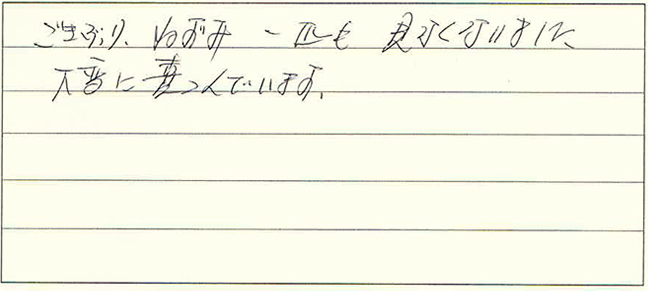 ごきぶり、ねずみ 一匹も 見なくなりました
大変に喜こんでいます。